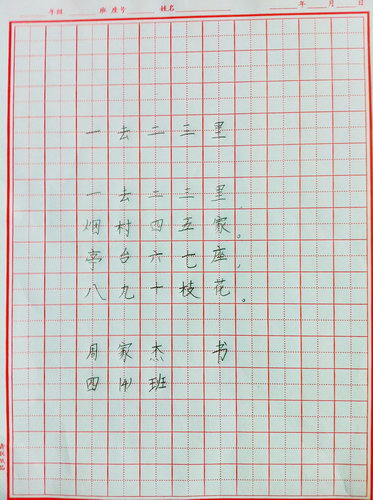 年级 班 座号 姓名 年 月 日
一去二三里
一去二三里,
烟村四五家。
亭台六七座,
八九十枝花。
周家杰 书
四(4)班